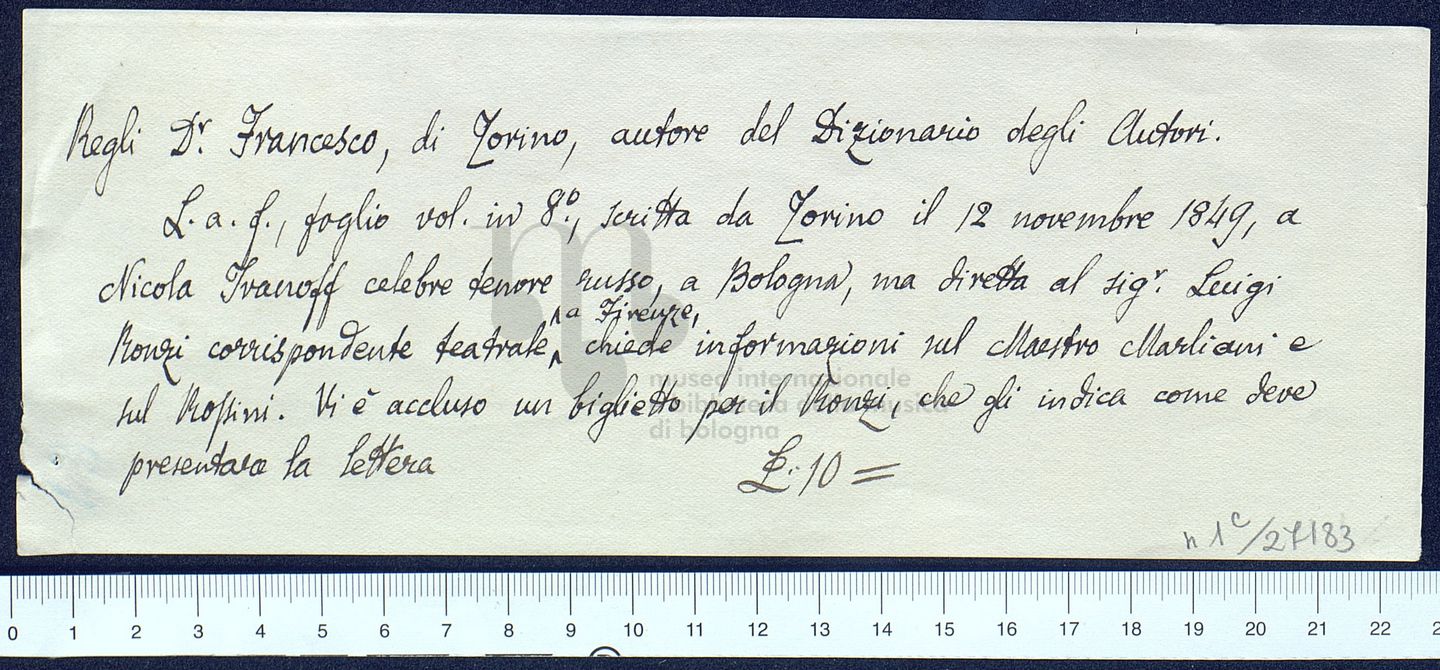 Regli Dr. Francesco, di Torino, autore del Dizionario degli Autori.
L. a. f., foglio vol. in 8º, scritta da Torino il 12 novembre 1849, a
Nicola Ivanoff celebre tenore russo, a Bologna, ma diretta al sigr. Luigi
a Firenze,
Ronzi corrispondente teatrale, chiede informazioni sul Maestro Marliani e
sul Rossini. Vi è accluso un biglietto per il Ronzi, che gli indica come deve
presentare la lettera
L. 10 =
n 1c/27183
museo internazionale
e biblioteca della musica
di bologna
0 1 2 3 4 5 6 7 8 9 10 11 12 13 14 15 16 17 18 19 20 21 22